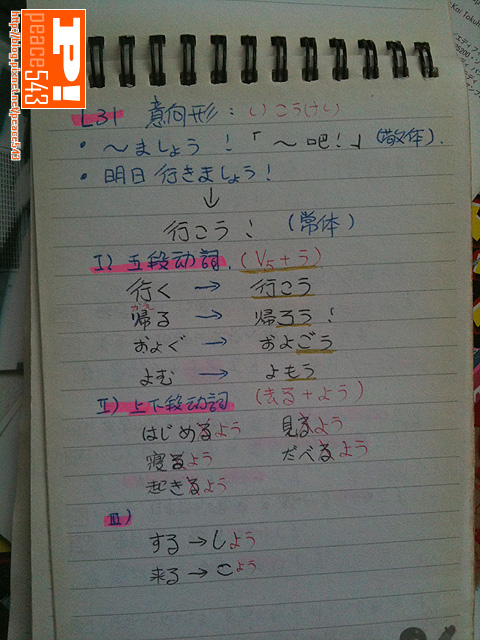 http://blog.pixnet.net/peace543
peace543
P!
Kai Tokuh
L31 意向形：いこうけい
・～ましょう！「～吧！」（敬体）.
・明日 行きましょう！
↓
行こう！（常体）
I）五段动词.（V5＋う）
行く → 行こう
かえ
帰る → 帰ろう！
およぐ → およごう
よむ → よもう
II）上下段动词（去る＋よう）
はじめるよう 見るよう
寝るよう だべるよう
起きるよう
III）
する→しよう
来る→こよう